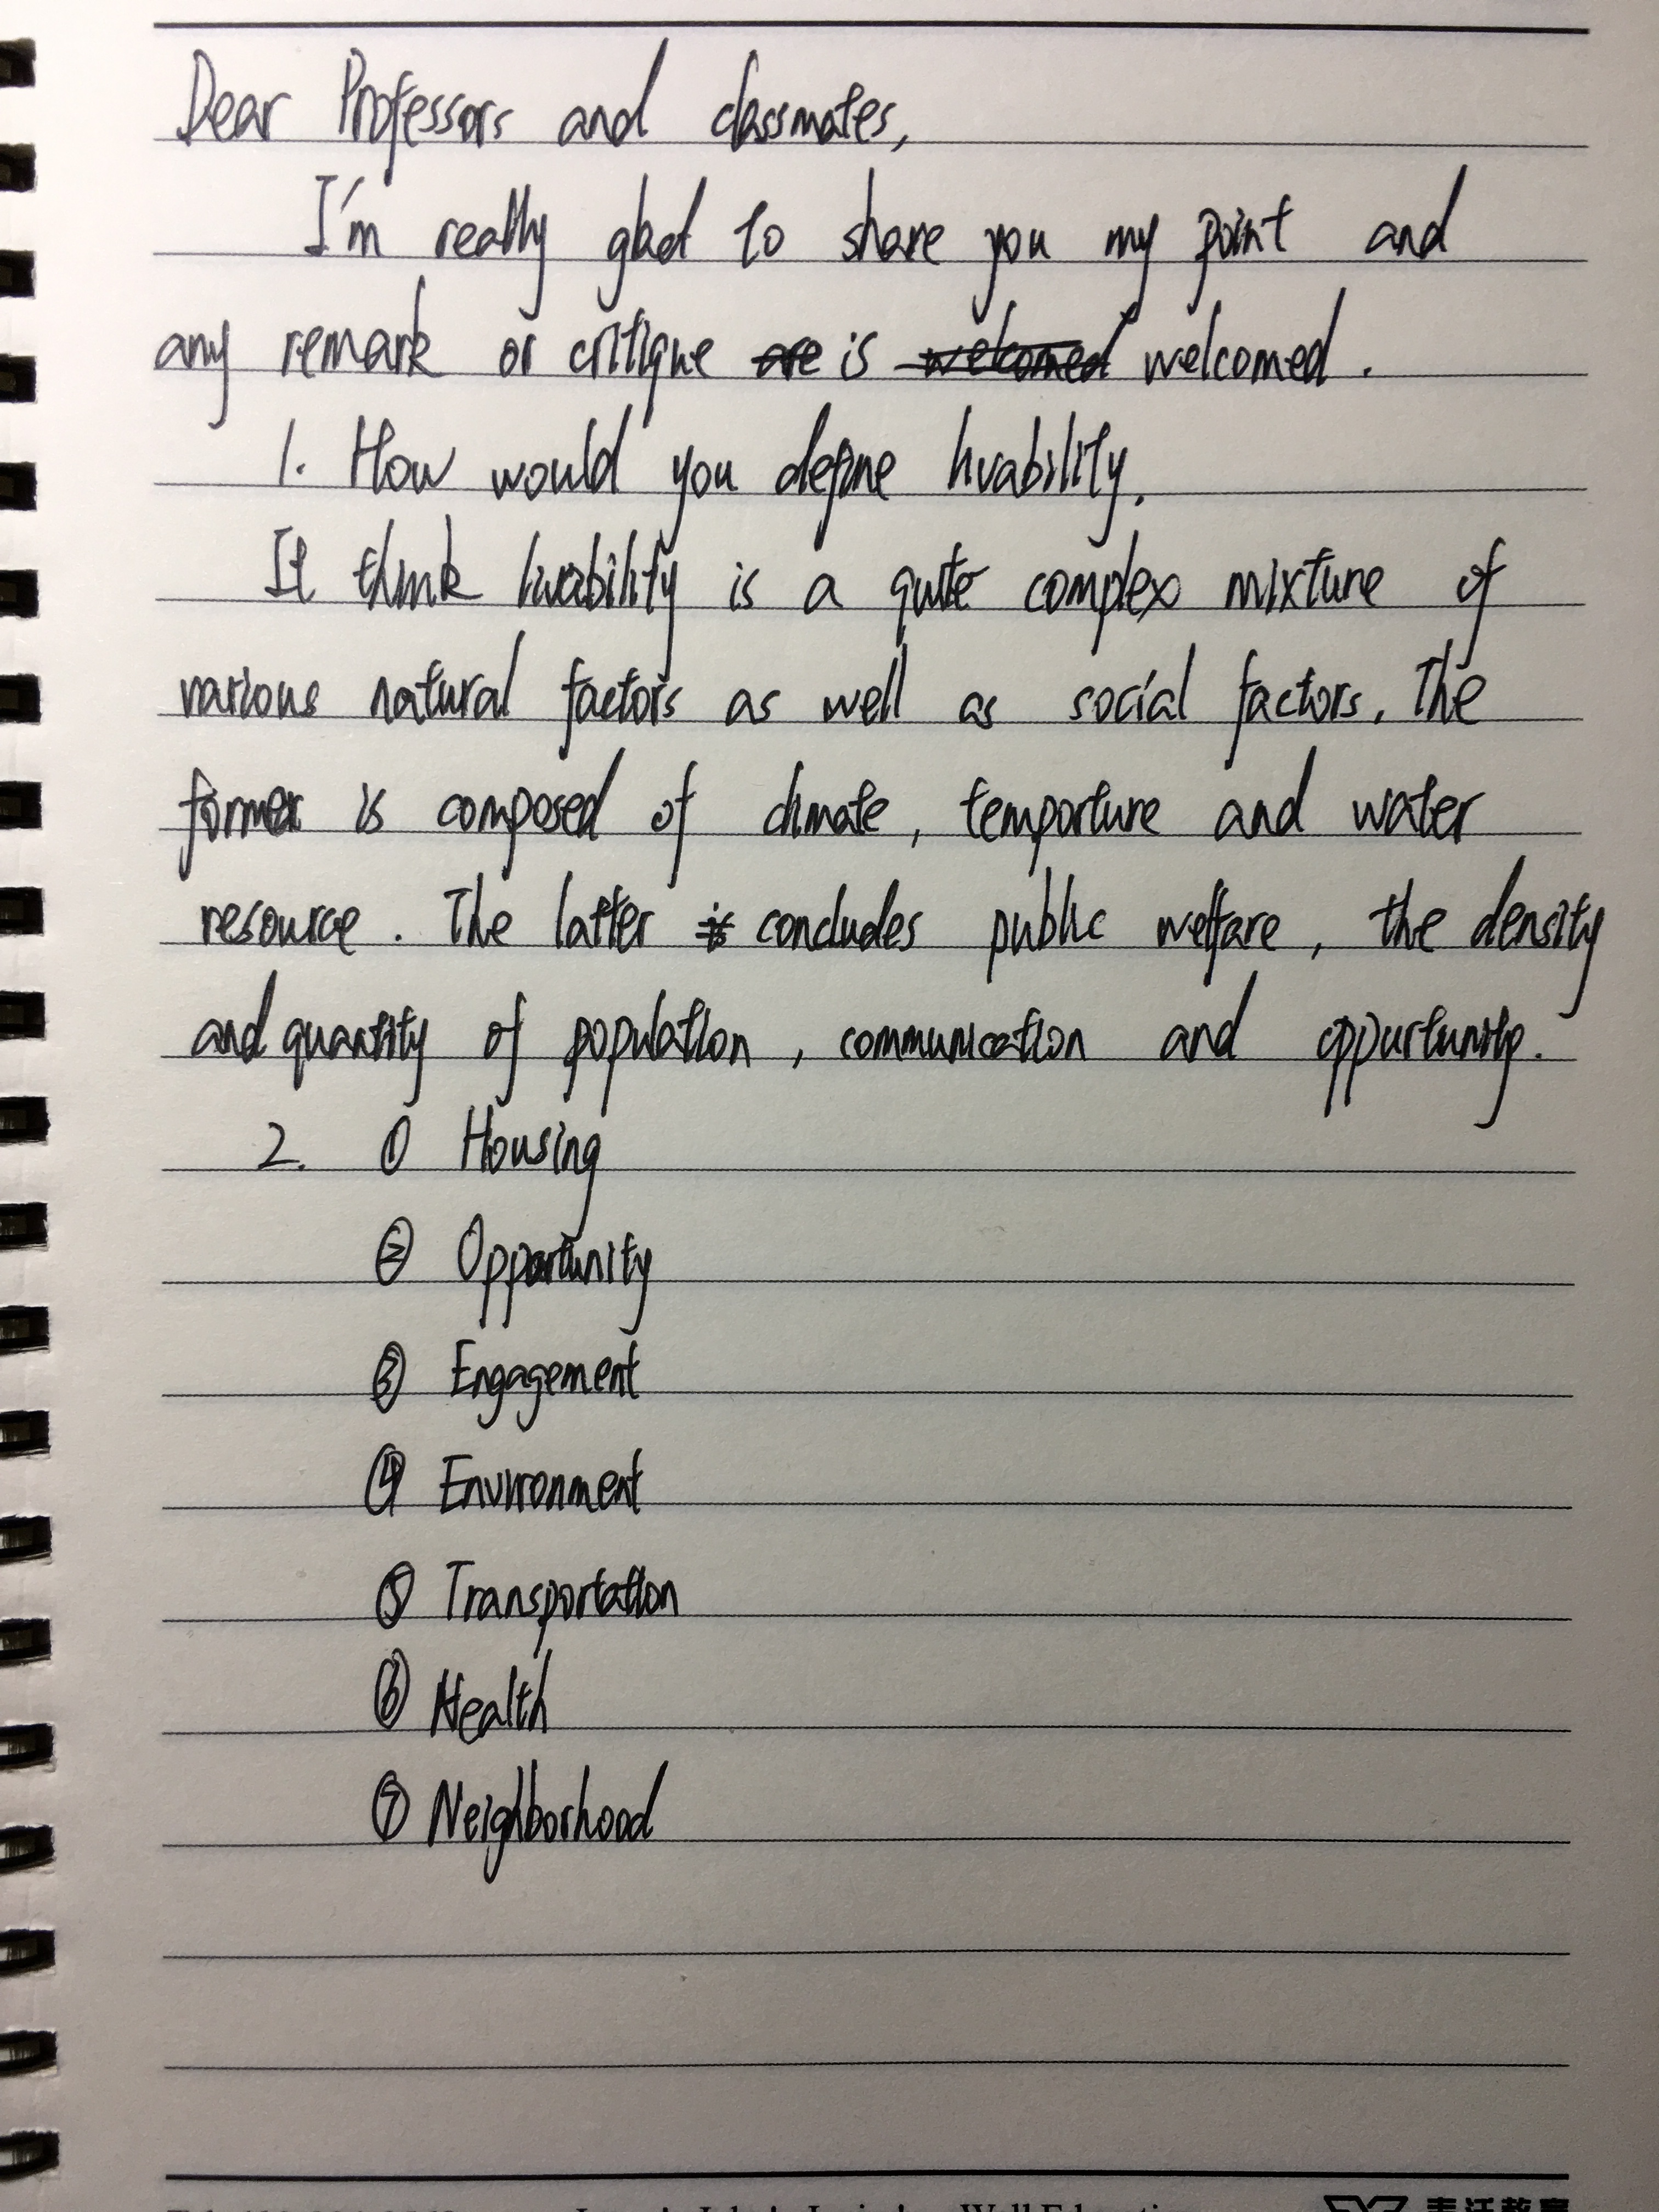 Dear Professors and classmates,
I'm really glad to share you my point and
any remark or critique are is welcomed welcomed.
1. How would you define livability.
It think livability is a quite complex mixture of
various natural factors as well as social factors. The
former is composed of climate, temporture and water
resource. The latter is concludes public welfare, the density
and quantity of population, communication and oppurtunity.
2. ① Housing
② Opportunity
③ Engagement
④ Environment
⑤ Transportation
⑥ Health
⑦ Neighborhood